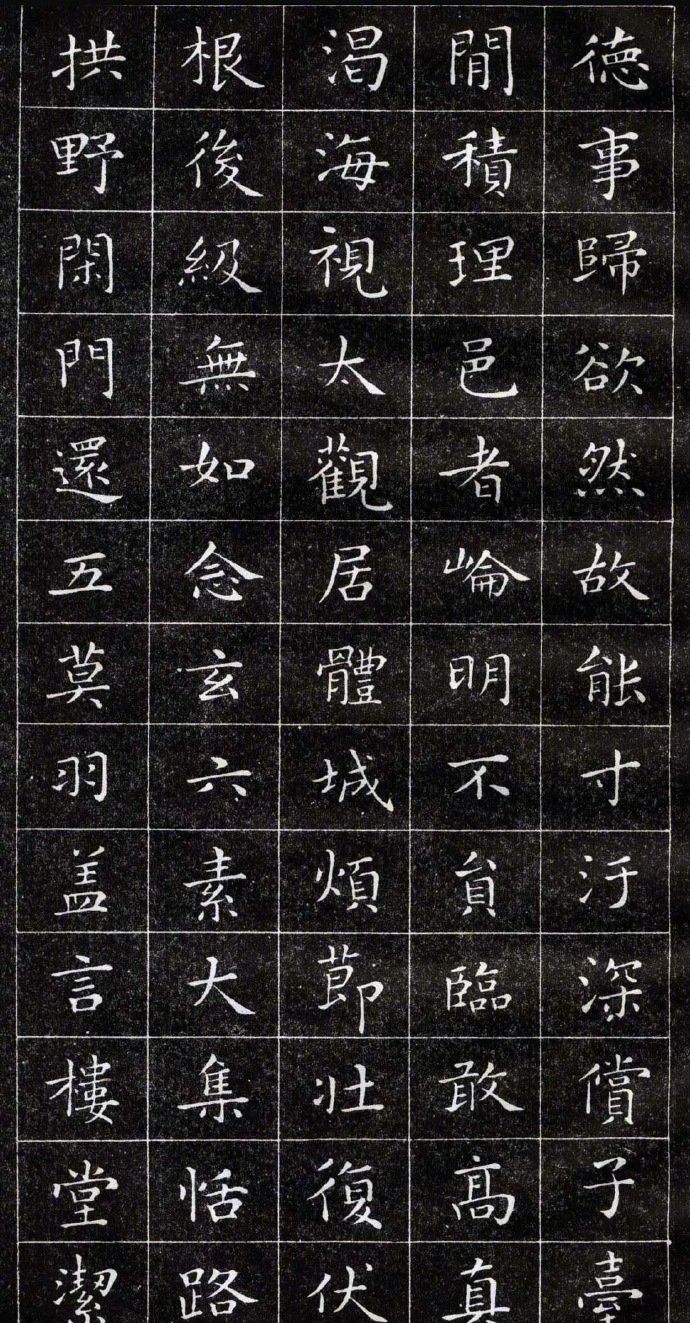 德事歸欲然故能寸汙深償子臺
閒積理邑者崘明不負臨敢髙真
渴海視太觀居體城煩莭壮復伏
根後級無如念玄六素大集恬路
拱野閑門還五莫羽盖言樓堂潔